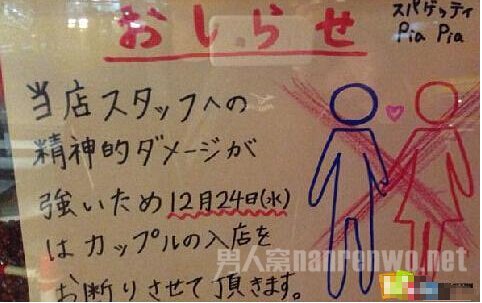 おしらせ
スパゲッティ
Pia Pia
当店スタッフへの
精神的ダメージが
強いため12月24日(水)
はカップルの入店を
お断りさせて頂きます。
男人窝nanrenwo.net